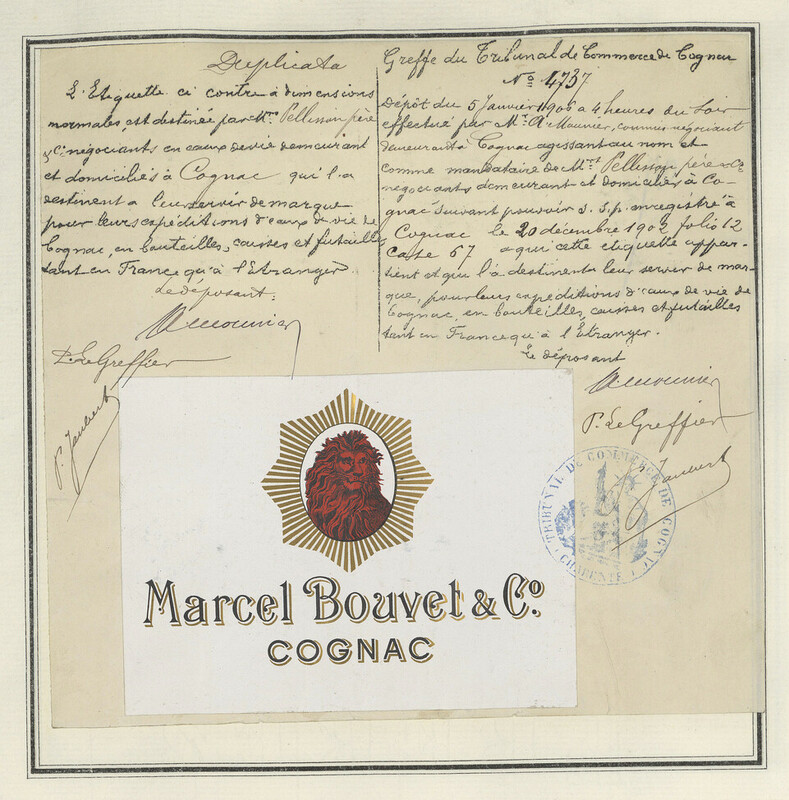 Duplicata
L'Etiquette ci contre à dimensions
normales, est destinée par Mrs Pellisson père
& Cie négociants en eaux de vie demeurant
et domiciliés à Cognac qui l'a
destinent a leur servir de marque
pour leurs expéditions d'eaux de vie de
Cognac, en bouteilles, caisses et futailles
tant en France qu'à l'Etranger.
Le déposant:
A Mounier
P. Le Greffier
P. Jaubert
Greffe du Tribunal de Commerce de Cognac
No 4737
Dépôt du 5 Janvier 1906 a 4 heures du soir
effectué par Mr A. Mounier, commis négociant
demeurant à Cognac agissant au nom et
comme mandataire de Mrs Pellisson père & Cie
négociants demeurant et domiciliés à Co-
gnac suivant pouvoir s.s.p. enregistré à
Cognac le 20 décembre 1902 folio 12
Case 57 a qui cette etiquette appar-
tient et qui l'a destinent a leur servir de mar-
que, pour leurs expéditions d'eaux de vie de
Cognac, en bouteilles, caisses et futailles
tant en France qu'à l'Etranger.
Le déposant
A Mounier
P. Le Greffier
Jaubert
TRIBUNAL DE COMMERCE DE COGNAC
CHARENTE
Marcel Bouvet & Co.
COGNAC